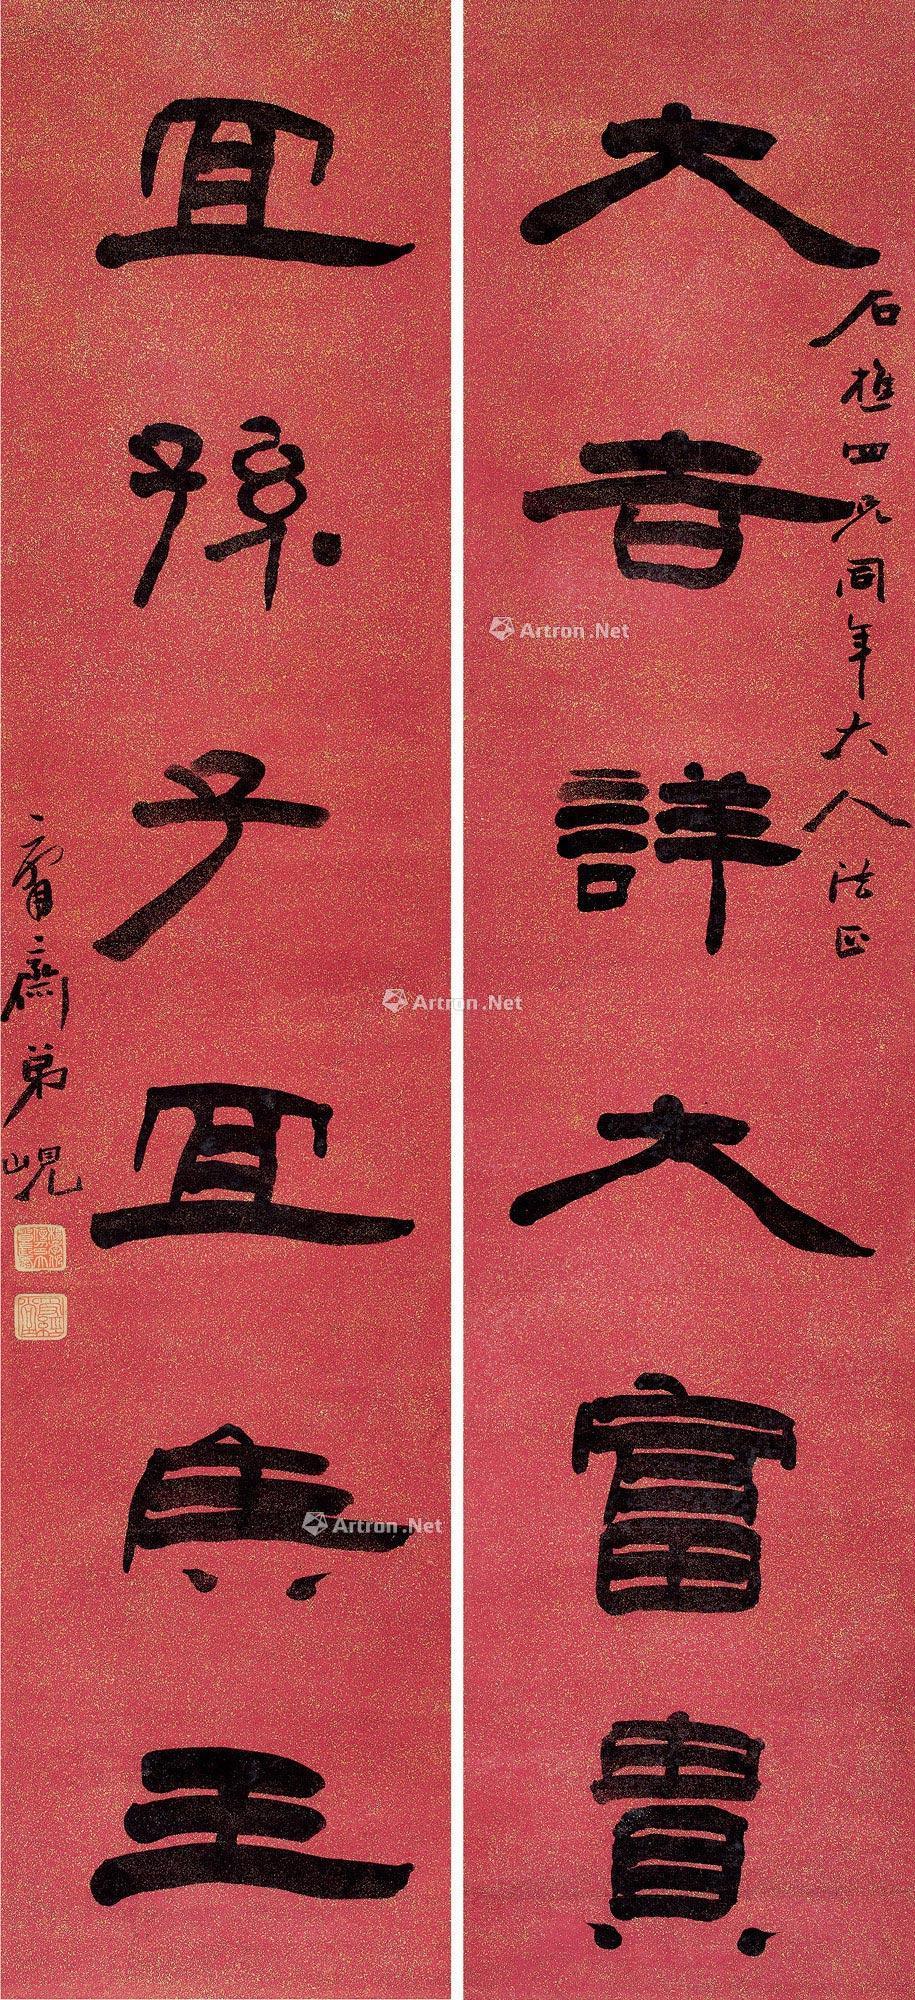 大吉詳大富貴
石樵四兄同年大人法正
宜孫子宜矦王
庸齋弟峴
Artron.Net
Artron.Net
Artron.Net